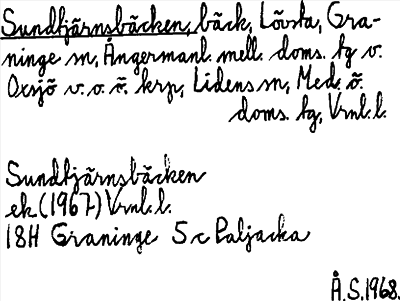 Sundtjärnsbäcken, bäck, Lövsta, Gra-
ninge sn, Ångermanl. mell. doms. tg v.
Oxsjö v. o. ö. krp, Lidens sn, Med. ö.
doms. tg, Vrnl. l.
Sundtjärnsbäcken
ek (1967) Vrnl. l.
18H Graninge 5 c Paljacka
Å.S. 1968.